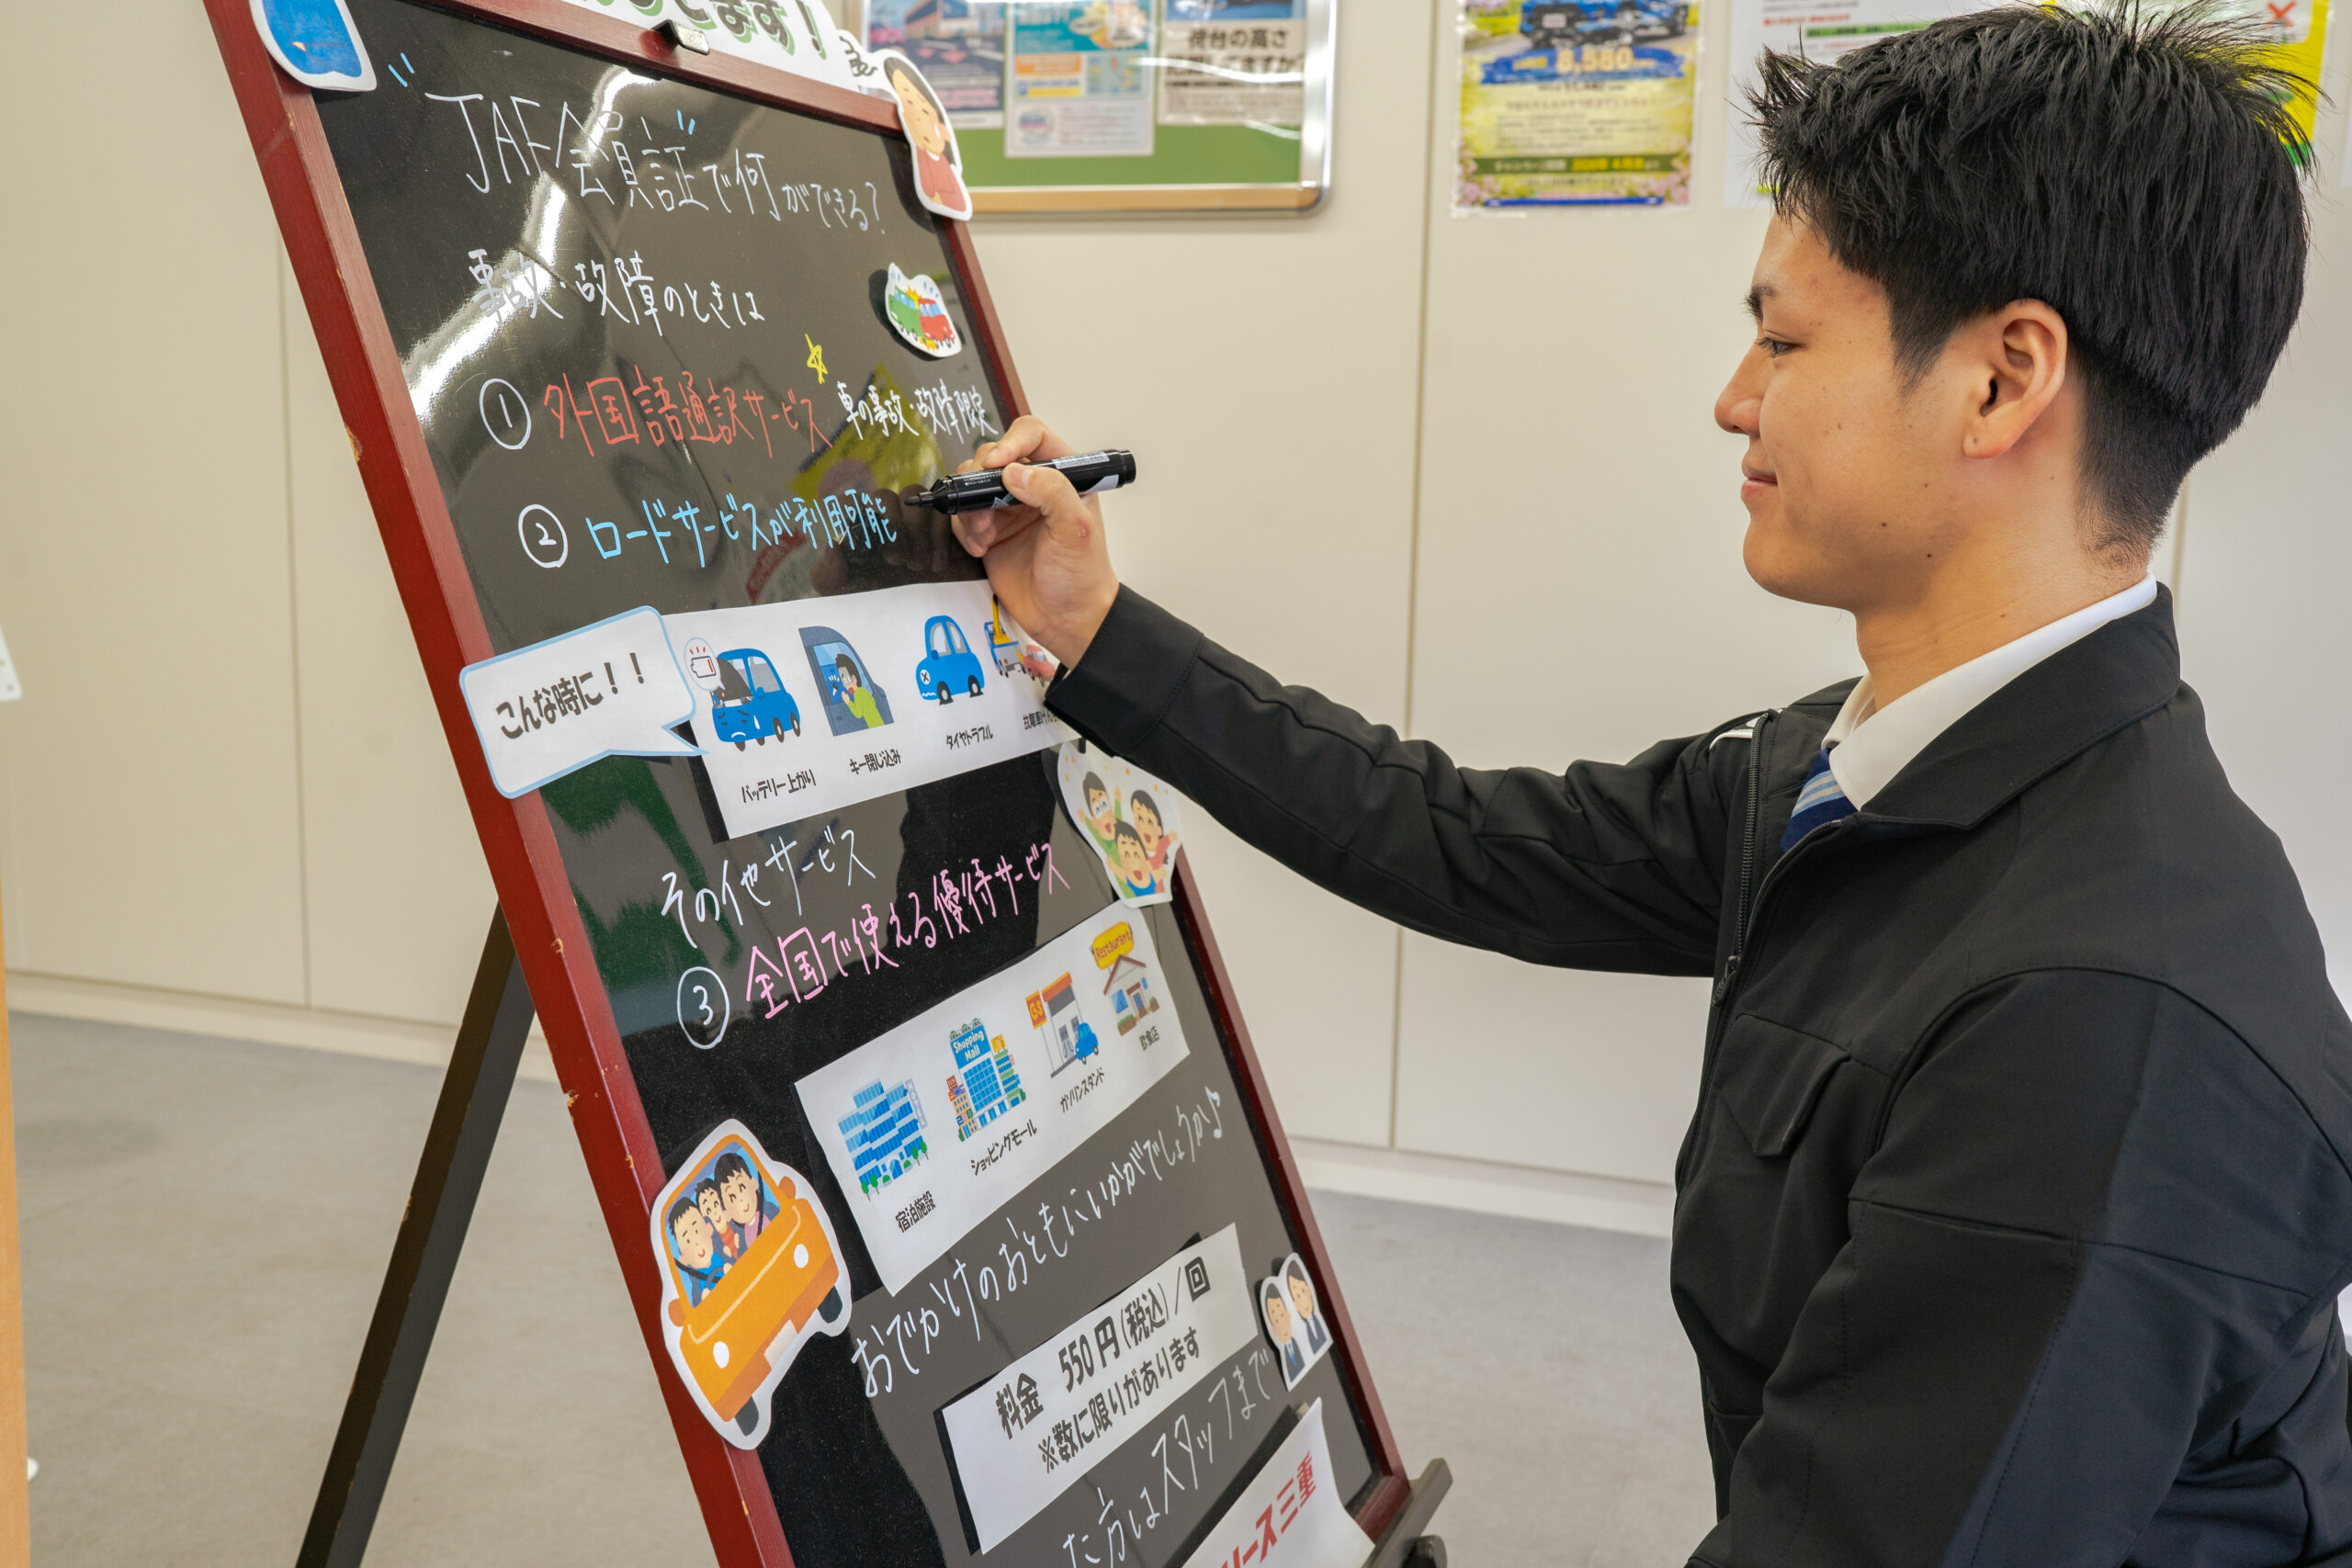 ます！
"JAF会員証"で何ができる？
事故・故障のときは
① 外国語通訳サービス 車の事故・故障限定
② ロードサービスが利用可能
こんな時に！！
バッテリー上がり
キー閉じ込み
タイヤトラブル
その他サービス
③ 全国で使える優待サービス
宿泊施設
Shopping Mall
ショッピングモール
GS
ガソリンスタンド
Restaurant
飲食店
おでかけのおともにいかがでしょうか♪
料金 550円(税込)／回
※数に限りがあります
た方はスタッフまで
リース三重
荷台の高さ
8,580